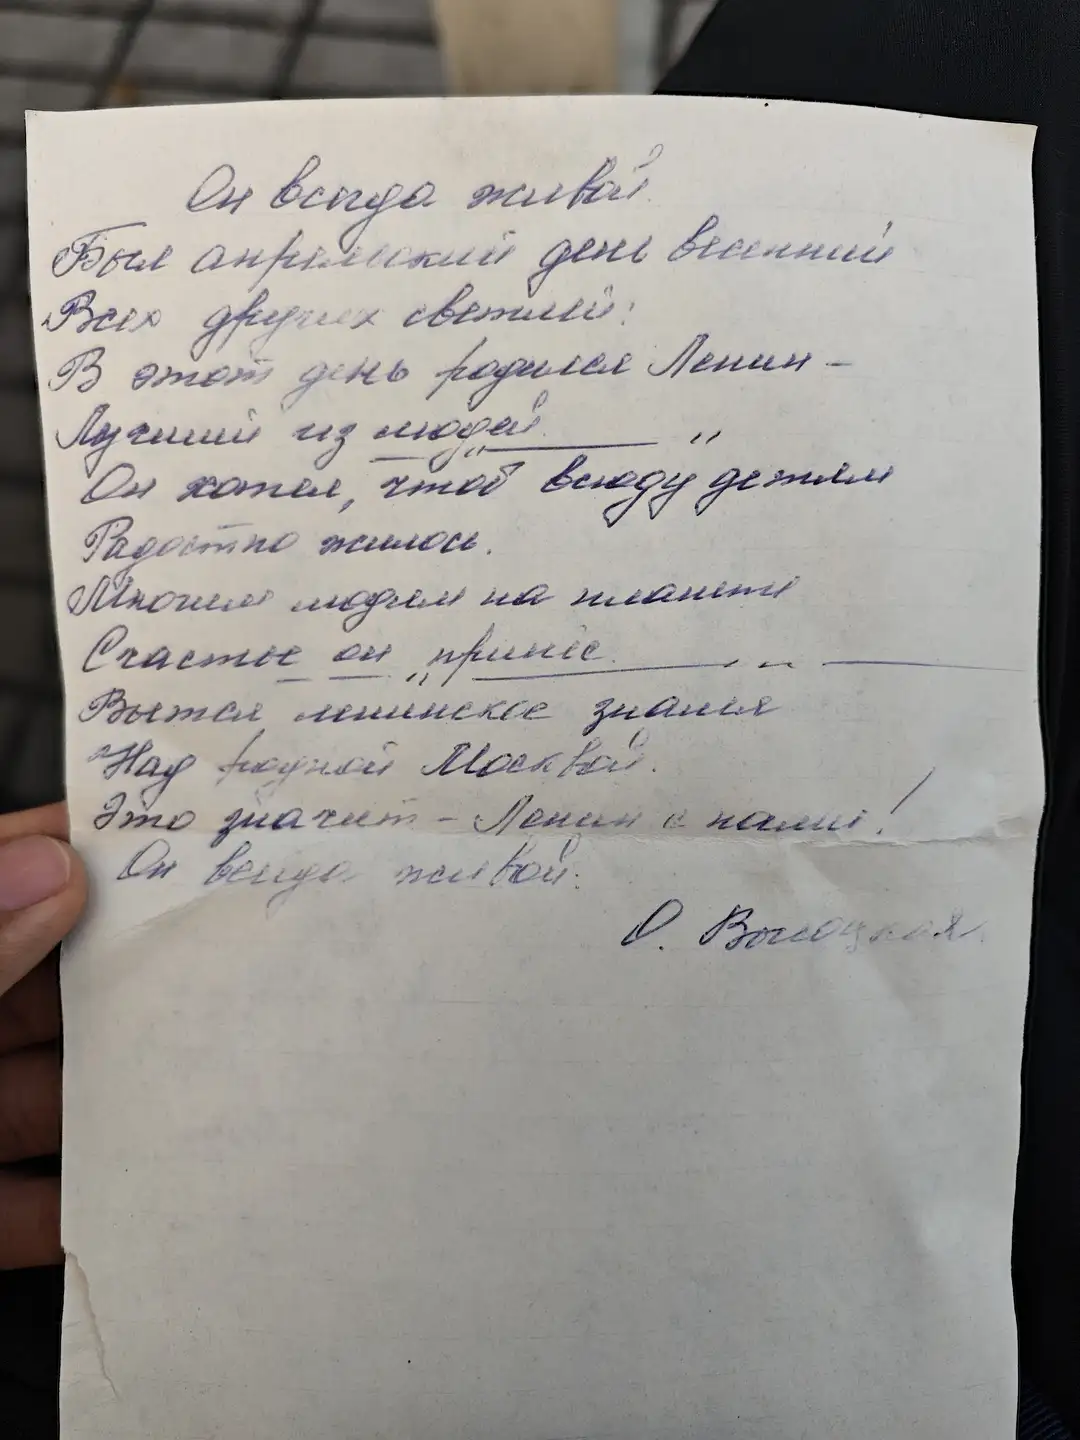 Он всегда живой.
Был апрельский день весенний
Всех других светлей:
В этот день родился Ленин -
Лучший из людей. „
Он хотел, чтоб всюду детям
Радостно жилось.
Многим людям на планете
Счастье он принёс.
Вьется ленинское знамя
Над родной Москвой.
Это значит - Ленин с нами!
Он всегда живой.
О. Высоцкая.